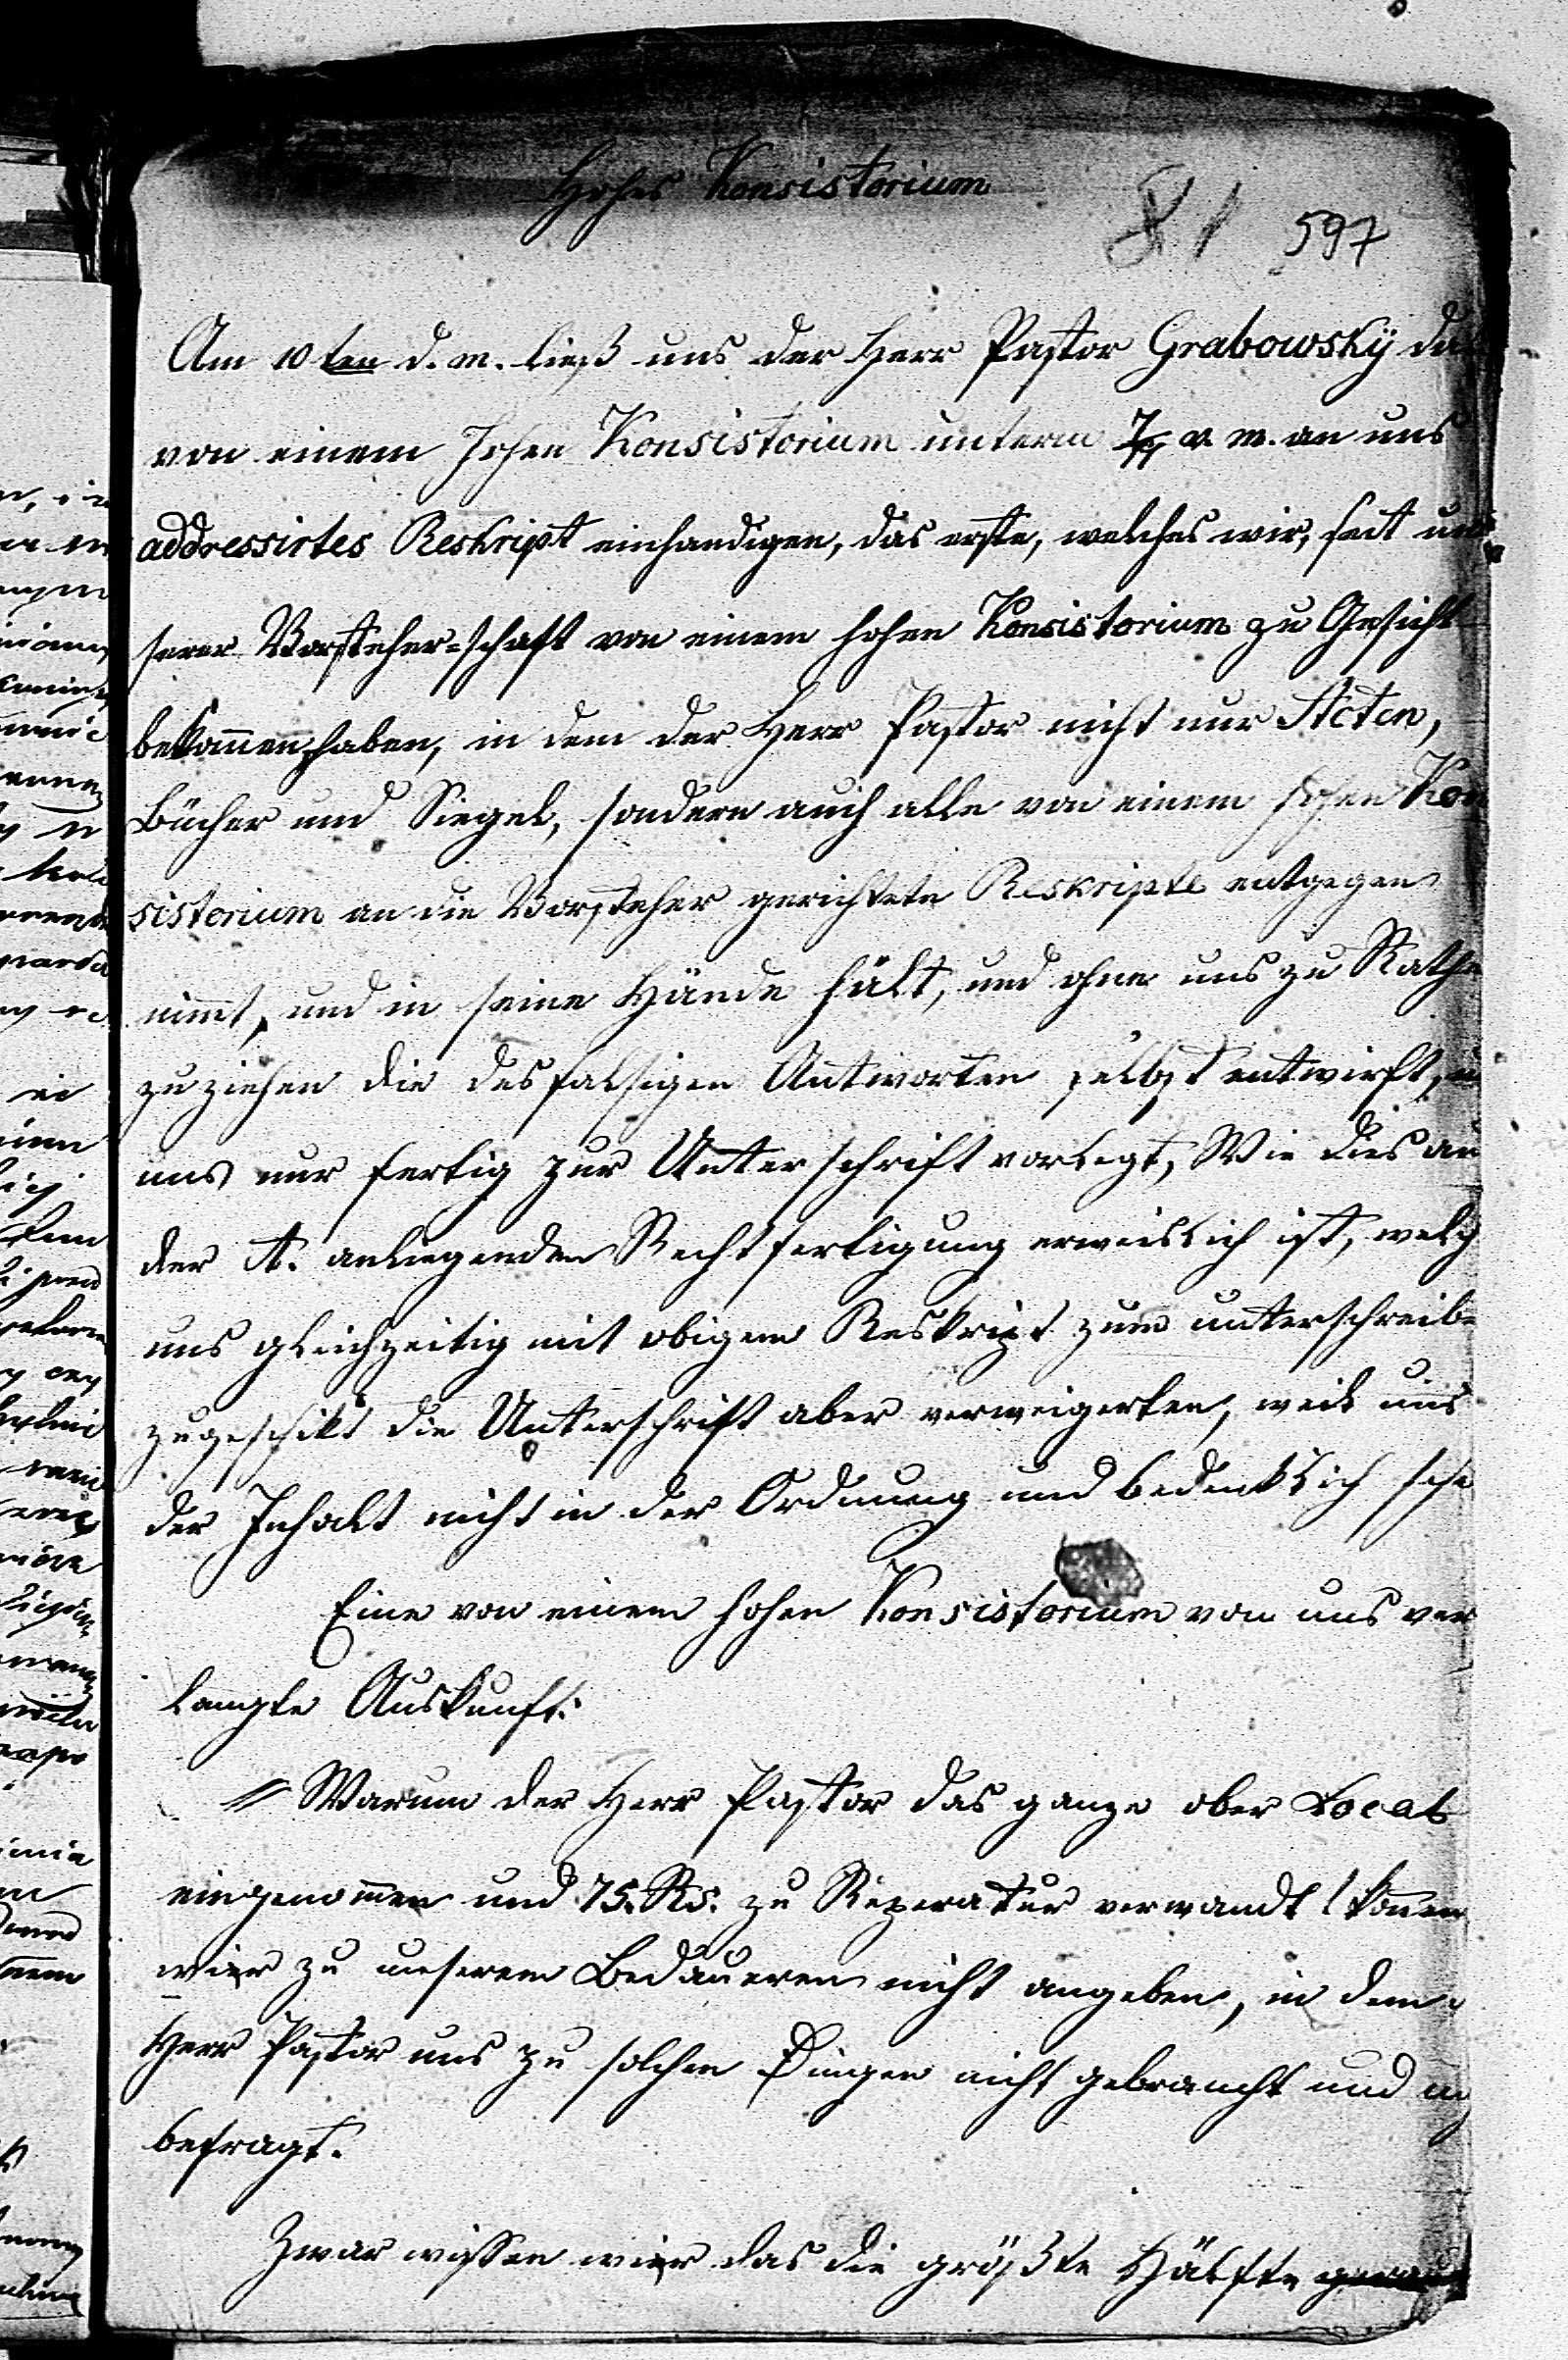 Hohes Konsistorium
81 597
Am 10ten d. m. ließ uns der Herr Pastor Grabowskÿ das
von einem hohen Konsistorium unterm v. m. an uns
addressirtes Reskript einhandigen, das erste, welches wir, seit un
serer Vorsteher=schaft von einem hohen Konsistorium zu Gesicht
bekom̄en haben, in dem der Herr Pastor nicht nur Acten,
Bücher und Siegel, sondern auch alle von einem hohen Kon
sistorium an die Vorsteher gerichtete Reskripte entgegen
nim̄t, und in seine Hände hält, und ohne uns zu Rathe
zu ziehen die desfalsigen Antworten selbst entwirft, u
uns nur fertig zur Unterschrift vorlegt, Wie dies au
der A. anliegenden Rechtfertigung erweislich ist, welch
uns gleichzeitig mit obigem Reskript zum unterschreibe
zugeschikt die Unterschrift aber verweigerten, weil uns
der Inhalt nicht in der Ordnung und bedenklich sch
Eine von einem hohen Konsistorium von uns ver
langte Auskunft:
" Warum der Herr Pastor das ganze ober Local
eingenom̄en und 75. Rs. zu Reperatur verwandt! kön̄en
wier zu unserem Bedaueren nicht angeben, in dem
Herr Pastor uns zu solchen Dingen nicht gebraucht und
befragt.
Zwar wissen wier das die größte Hälfte